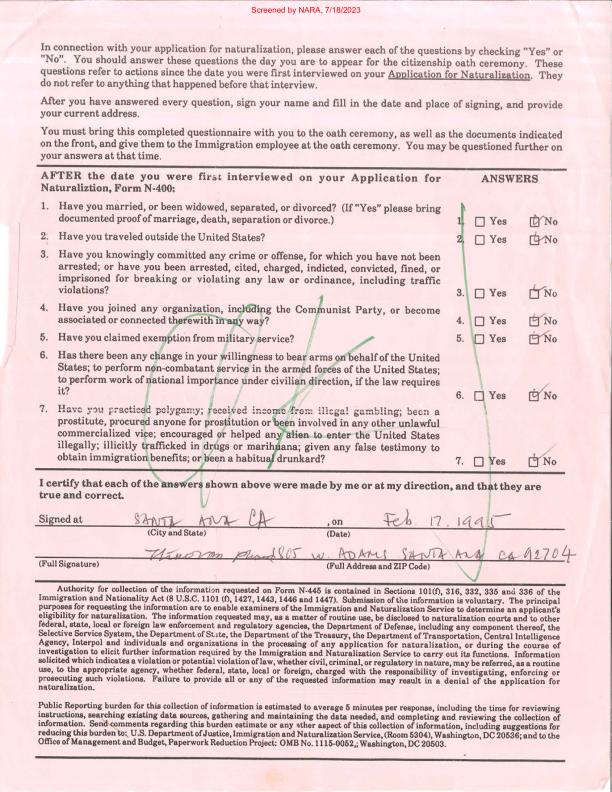 Screened by NARA, 7/18/2023
In connection with your application for naturalization, please answer each of the questions by checking "Yes" or
"No". You should answer these questions the day you are to appear for the citizenship oath ceremony. These
questions refer to actions since the date you were first interviewed on your Application for Naturalization. They
do not refer to anything that happened before that interview.
After you have answered every question, sign your name and fill in the date and place of signing, and provide
your current address.
You must bring this completed questionnaire with you to the oath ceremony, as well as the documents indicated
on the front, and give them to the Immigration employee at the oath ceremony. You may be questioned further on
your answers at that time.
AFTER the date you were first interviewed on your Application for ANSWERS
Naturaliztion, Form N-400:
1. Have you married, or been widowed, separated, or divorced? (If "Yes" please bring
documented proof of marriage, death, separation or divorce.) 1. Yes No
2. Have you traveled outside the United States? 2. Yes No
3. Have you knowingly committed any crime or offense, for which you have not been
arrested; or have you been arrested, cited, charged, indicted, convicted, fined, or
imprisoned for breaking or violating any law or ordinance, including traffic
violations? 3. Yes No
4. Have you joined any organization, including the Communist Party, or become
associated or connected therewith in any way? 4. Yes No
5. Have you claimed exemption from military service? 5. Yes No
6. Has there been any change in your willingness to bear arms on behalf of the United
States; to perform non-combatant service in the armed forces of the United States;
to perform work of national importance under civilian direction, if the law requires
it? 6. Yes No
7. Have you practiced polygamy; received income from illegal gambling; been a
prostitute, procured anyone for prostitution or been involved in any other unlawful
commercialized vice; encouraged or helped any alien to enter the United States
illegally; illicitly trafficked in drugs or marihuana; given any false testimony to
obtain immigration benefits; or been a habitual drunkard? 7. Yes No
I certify that each of the answers shown above were made by me or at my direction, and that they are
true and correct.
Signed at SANTA ANA CA , on Feb. 17. 1995
(City and State) (Date)
805 W. ADAMS SANTA ANA CA 92704
(Full Signature) (Full Address and ZIP Code)
Authority for collection of the information requested on Form N-445 is contained in Sections 101(f), 316, 332, 335 and 336 of the
Immigration and Nationality Act (8 U.S.C. 1101 (f), 1427, 1443, 1446 and 1447). Submission of the information is voluntary. The principal
purposes for requesting the information are to enable examiners of the Immigration and Naturalization Service to determine an applicant's
eligibility for naturalization. The information requested may, as a matter of routine use, be disclosed to naturalization courts and to other
federal, state, local or foreign law enforcement and regulatory agencies, the Department of Defense, including any component thereof, the
Selective Service System, the Department of State, the Department of the Treasury, the Department of Transportation, Central Intelligence
Agency, Interpol and individuals and organizations in the processing of any application for naturalization, or during the course of
investigation to elicit further information required by the Immigration and Naturalization Service to carry out its functions. Information
solicited which indicates a violation or potential violation of law, whether civil, criminal, or regulatory in nature, may be referred, as a routine
use, to the appropriate agency, whether federal, state, local or foreign, charged with the responsibility of investigating, enforcing or
prosecuting such violations. Failure to provide all or any of the requested information may result in a denial of the application for
naturalization.
Public Reporting burden for this collection of information is estimated to average 5 minutes per response, including the time for reviewing
instructions, searching existing data sources, gathering and maintaining the data needed, and completing and reviewing the collection of
information. Send comments regarding this burden estimate or any other aspect of this collection of information, including suggestions for
reducing this burden to: U.S. Department of Justice, Immigration and Naturalization Service, (Room 5304), Washington, DC 20536; and to the
Office of Management and Budget, Paperwork Reduction Project: OMB No. 1115-0052,; Washington, DC 20503.